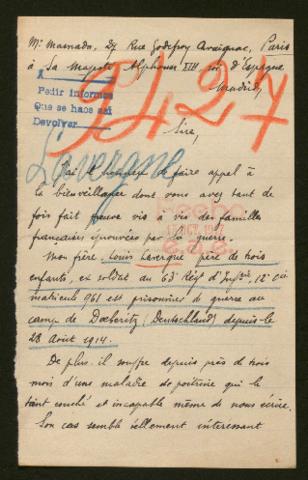 Mr Mamado, 27 Rue Godefroy Cavaignac, Paris
à Sa Majesté Alphonse XIII roi d'Espagne
Madrid,
Pedir informes
Que se haos así
Devolver
54427
Sire,
Lavergne
J'ai l'honneur de faire appel à
la bienveillance dont vous avez tant de
fois fait preuve vis à vis des familles
françaises éprouvées par la guerre.
Mon frère, Louis Lavergne père de trois
enfants, ex soldat du 63e Régt d'Infrie, 12e Cie
matricule 961 est prisonnier de guerre au
camp de Doeberitz (Deutschland) depuis le
28 Août 1914.
De plus il souffre depuis près de trois
mois d'une maladie de poitrine qui le
tient couché et incapable même de nous écrire.
Son cas semble tellement interessant